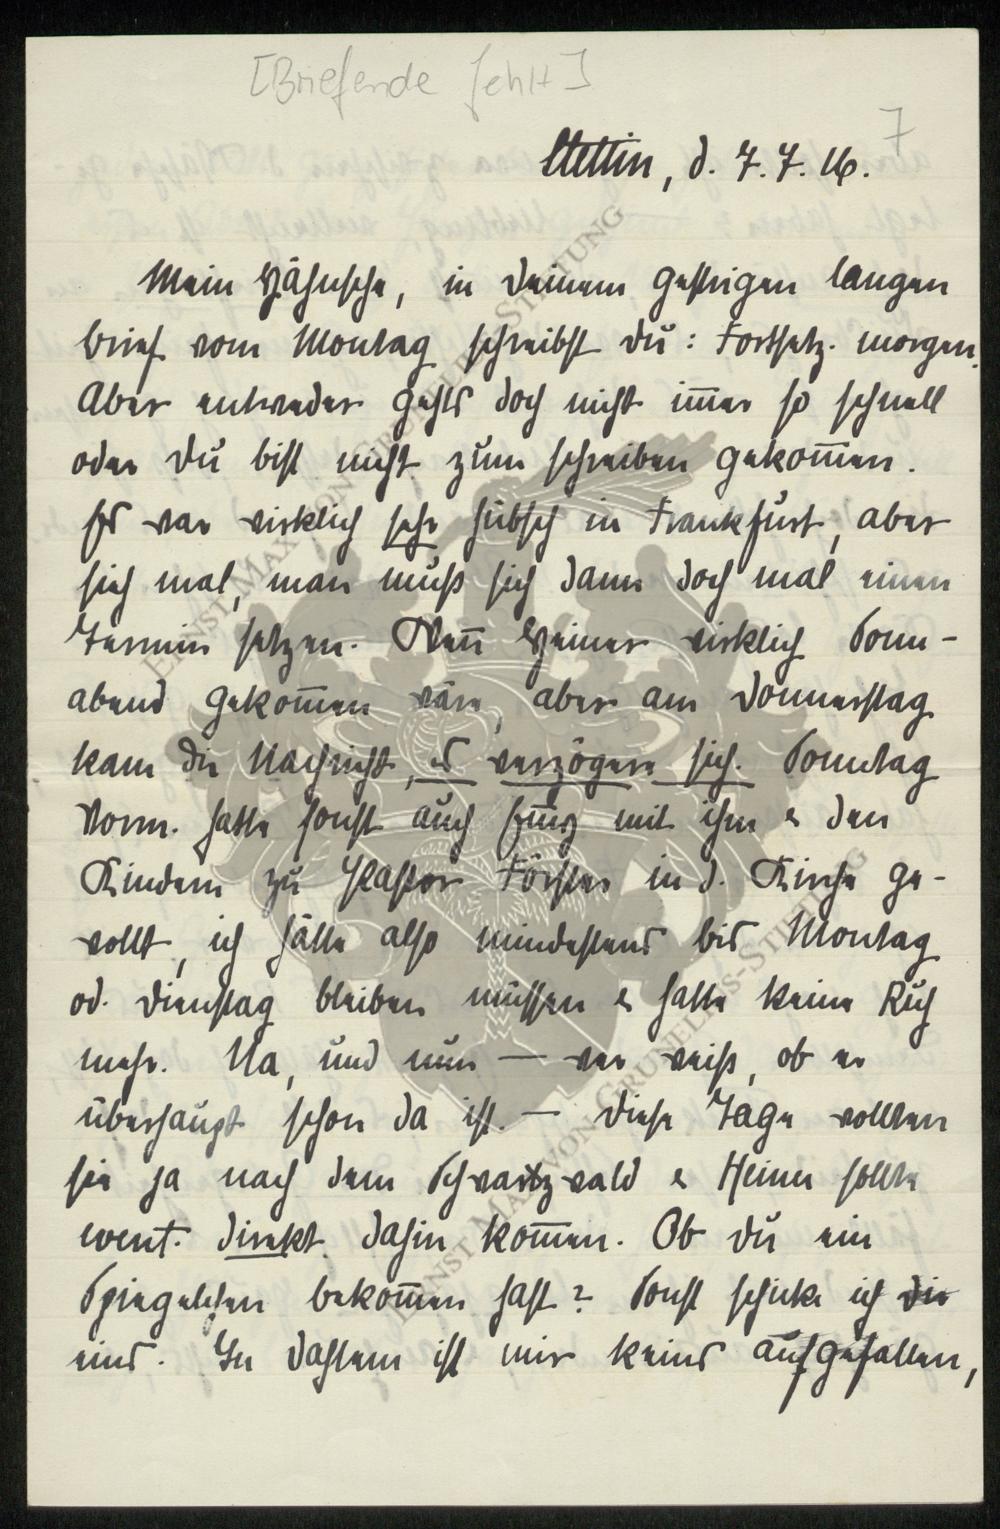 [Briefende fehlt]
7
Stettin, d. 7. 7. 16.
Mein Hähnsche, in Deinem gestrigen langen
Brief vom Montag schreibst Du: Fortsetz. morgen.
Aber entweder gehts doch nicht im̅er so schnell
oder Du bist nicht zum schreiben gekom̅en.
Es war wirklich sehr hübsch in Frankfurt, aber
sieh mal, man muß sich dann doch mal einen
Termin setzen. Wen̅ Heiner wirklich Sonn-
abend gekom̅en wäre, aber am Donnerstag
kam die Nachricht, es verzögere sich. Sonntag
Vorm. hatte sonst auch mit ihm & den
Kindern zu Pastor Förster in d. Kirche ge-
wollt, ich hätte also mindestens bis Montag
od. Dienstag bleiben müssen & hatte keine Ruh
mehr. Na, und nun — wer weiß, ob er
überhaupt schon da ist. — Diese Tage wollten
sie ja nach dem Schwarzwald & Heiner sollte
event. direkt dahin kom̅en. Ob Du ein
Spiegelchen bekom̅en hast? Sonst schicke ich Dir
eins. In Dahlem ist mir keins aufgefallen,
ERNST MAX VON GRUNELIUS-STIFTUNG
ERNST MAX VON GRUNELIUS-STIFTUNG